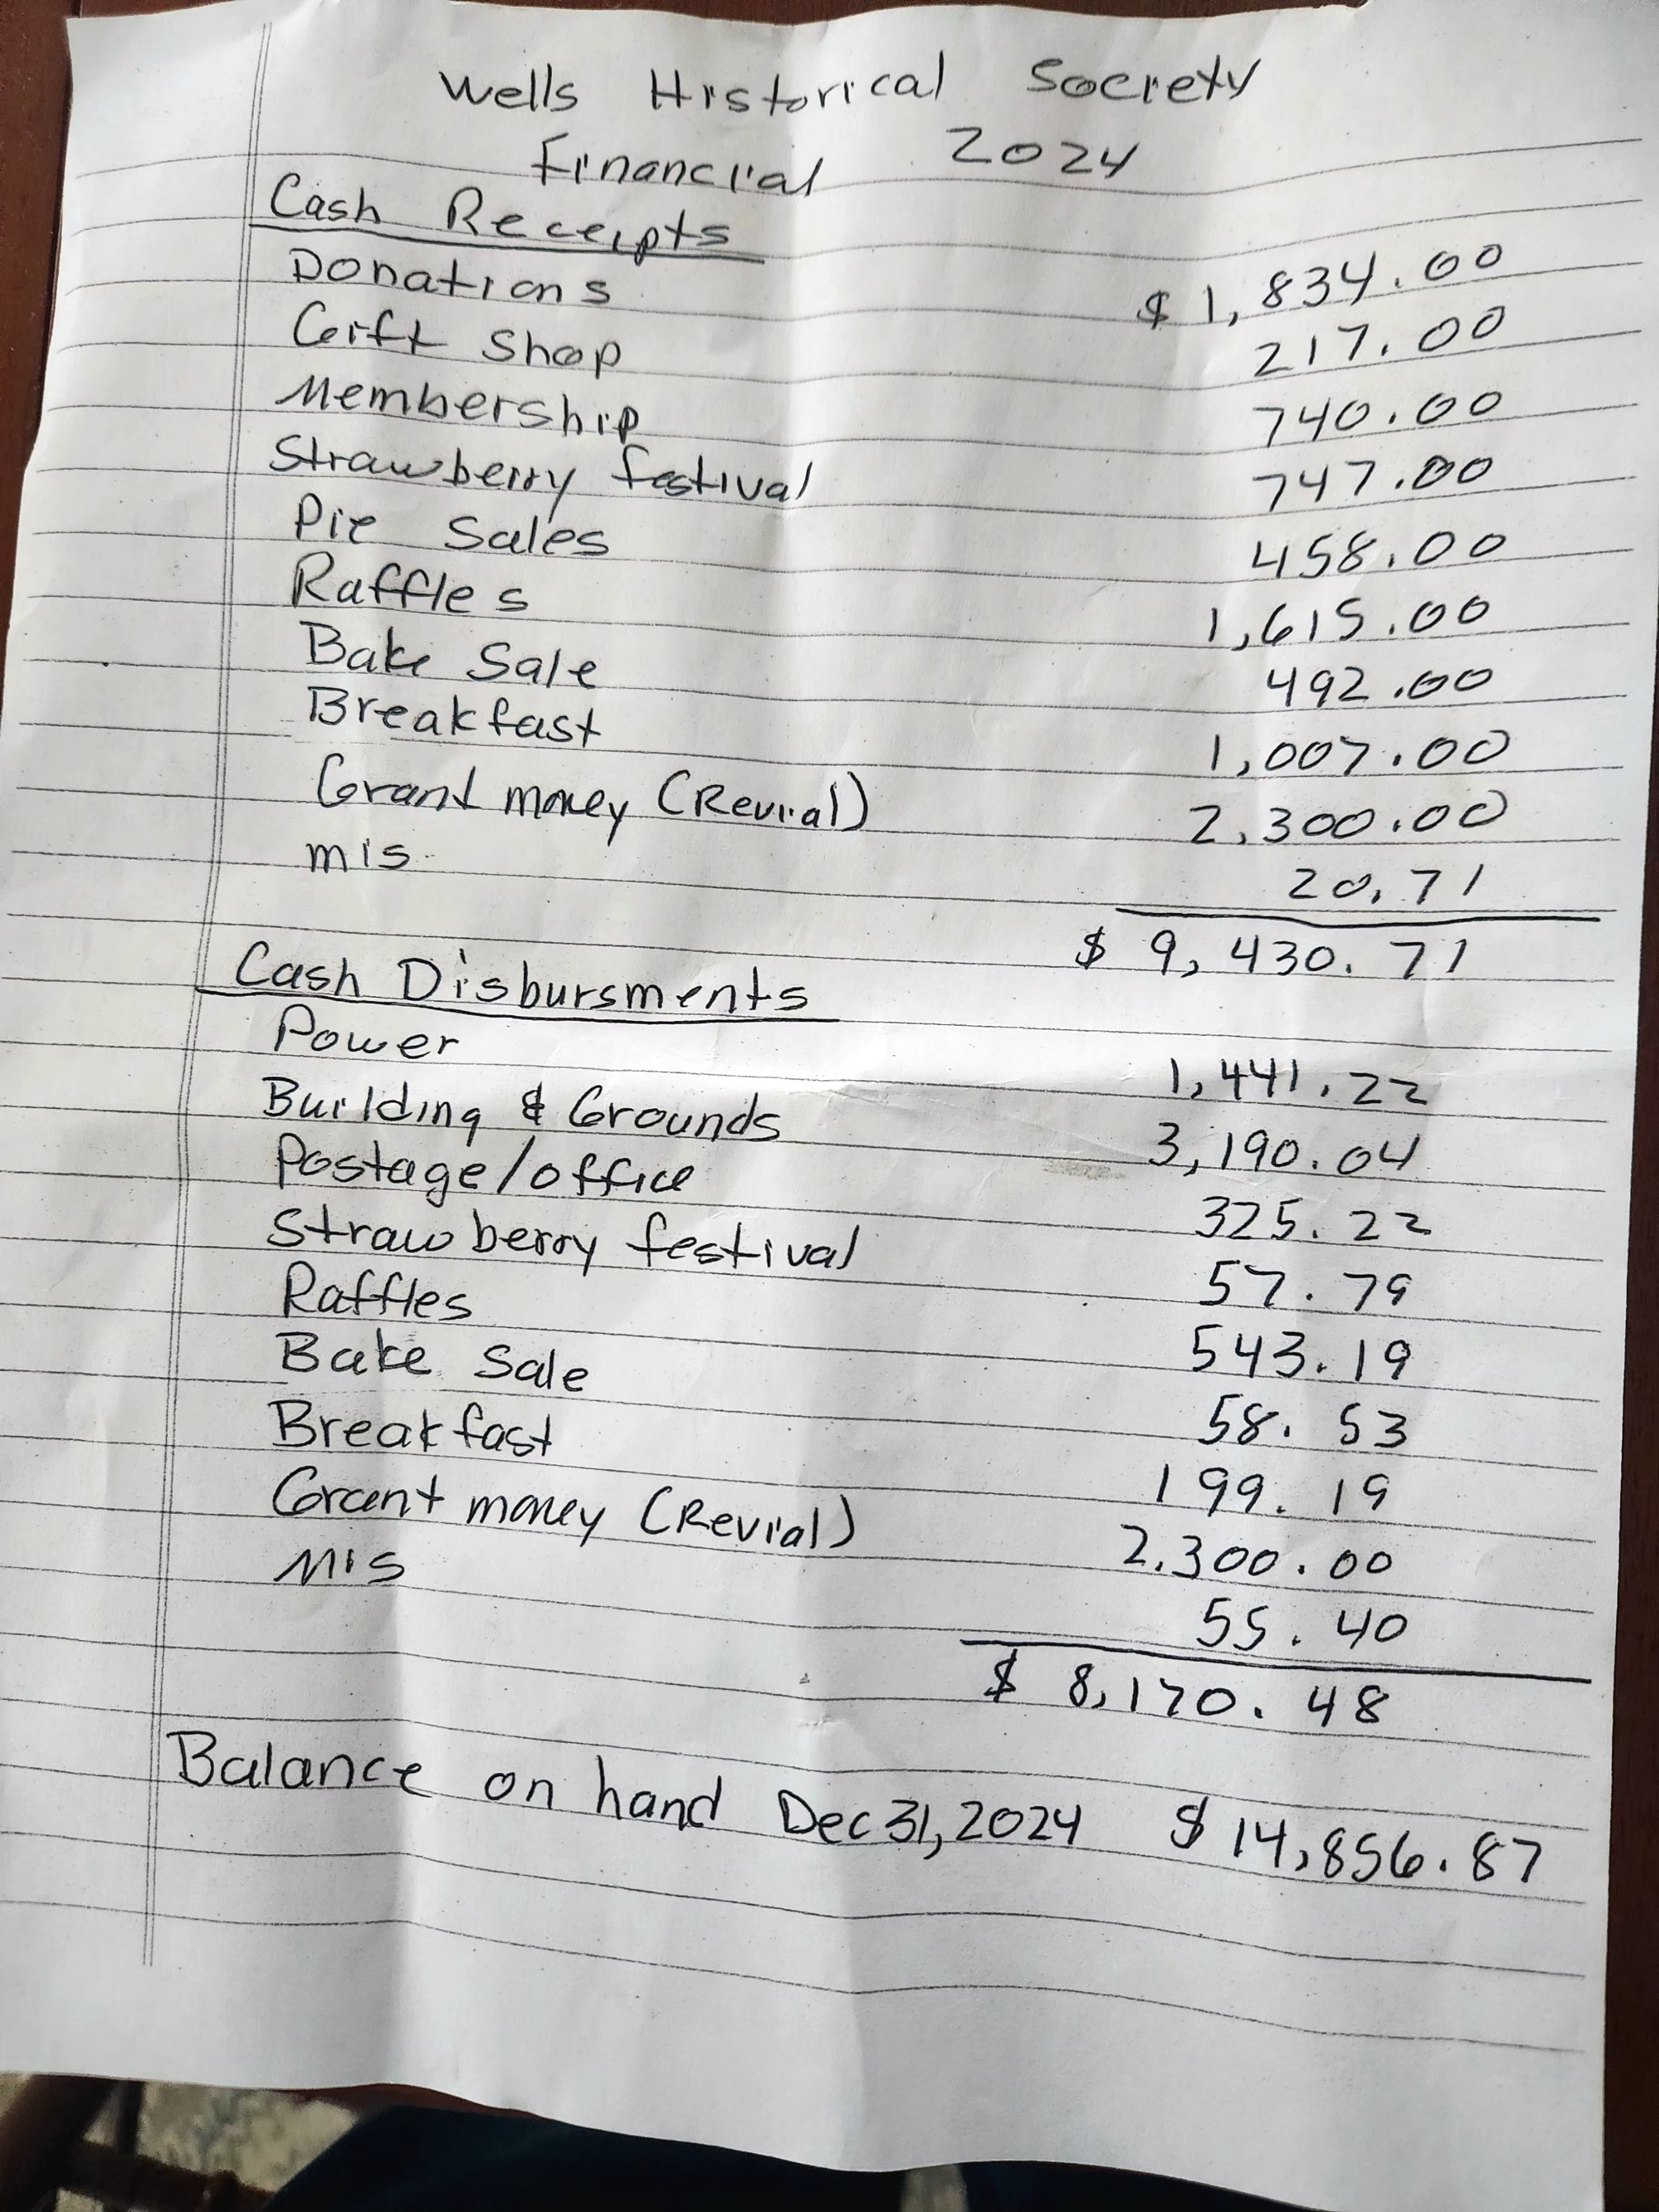 Wells Historical Society
Financial 2024
Cash Receipts
Donations $ 1,834.00
Gift Shop 217.00
Membership 740.00
Strawberry festival 747.00
Pie Sales 458.00
Raffles 1,615.00
Bake Sale 492.00
Breakfast 1,007.00
Grant money (Revial) 2,300.00
mis 20.71
$ 9,430.71
Cash Disbursments
Power 1,441.22
Building & Grounds 3,190.04
Postage/office 325.22
Strawberry festival 57.79
Raffles 543.19
Bake Sale 58.53
Breakfast 199.19
Grant money (Revial) 2.300.00
Mis 55.40
$ 8,170.48
Balance on hand Dec 31, 2024 $ 14,856.87